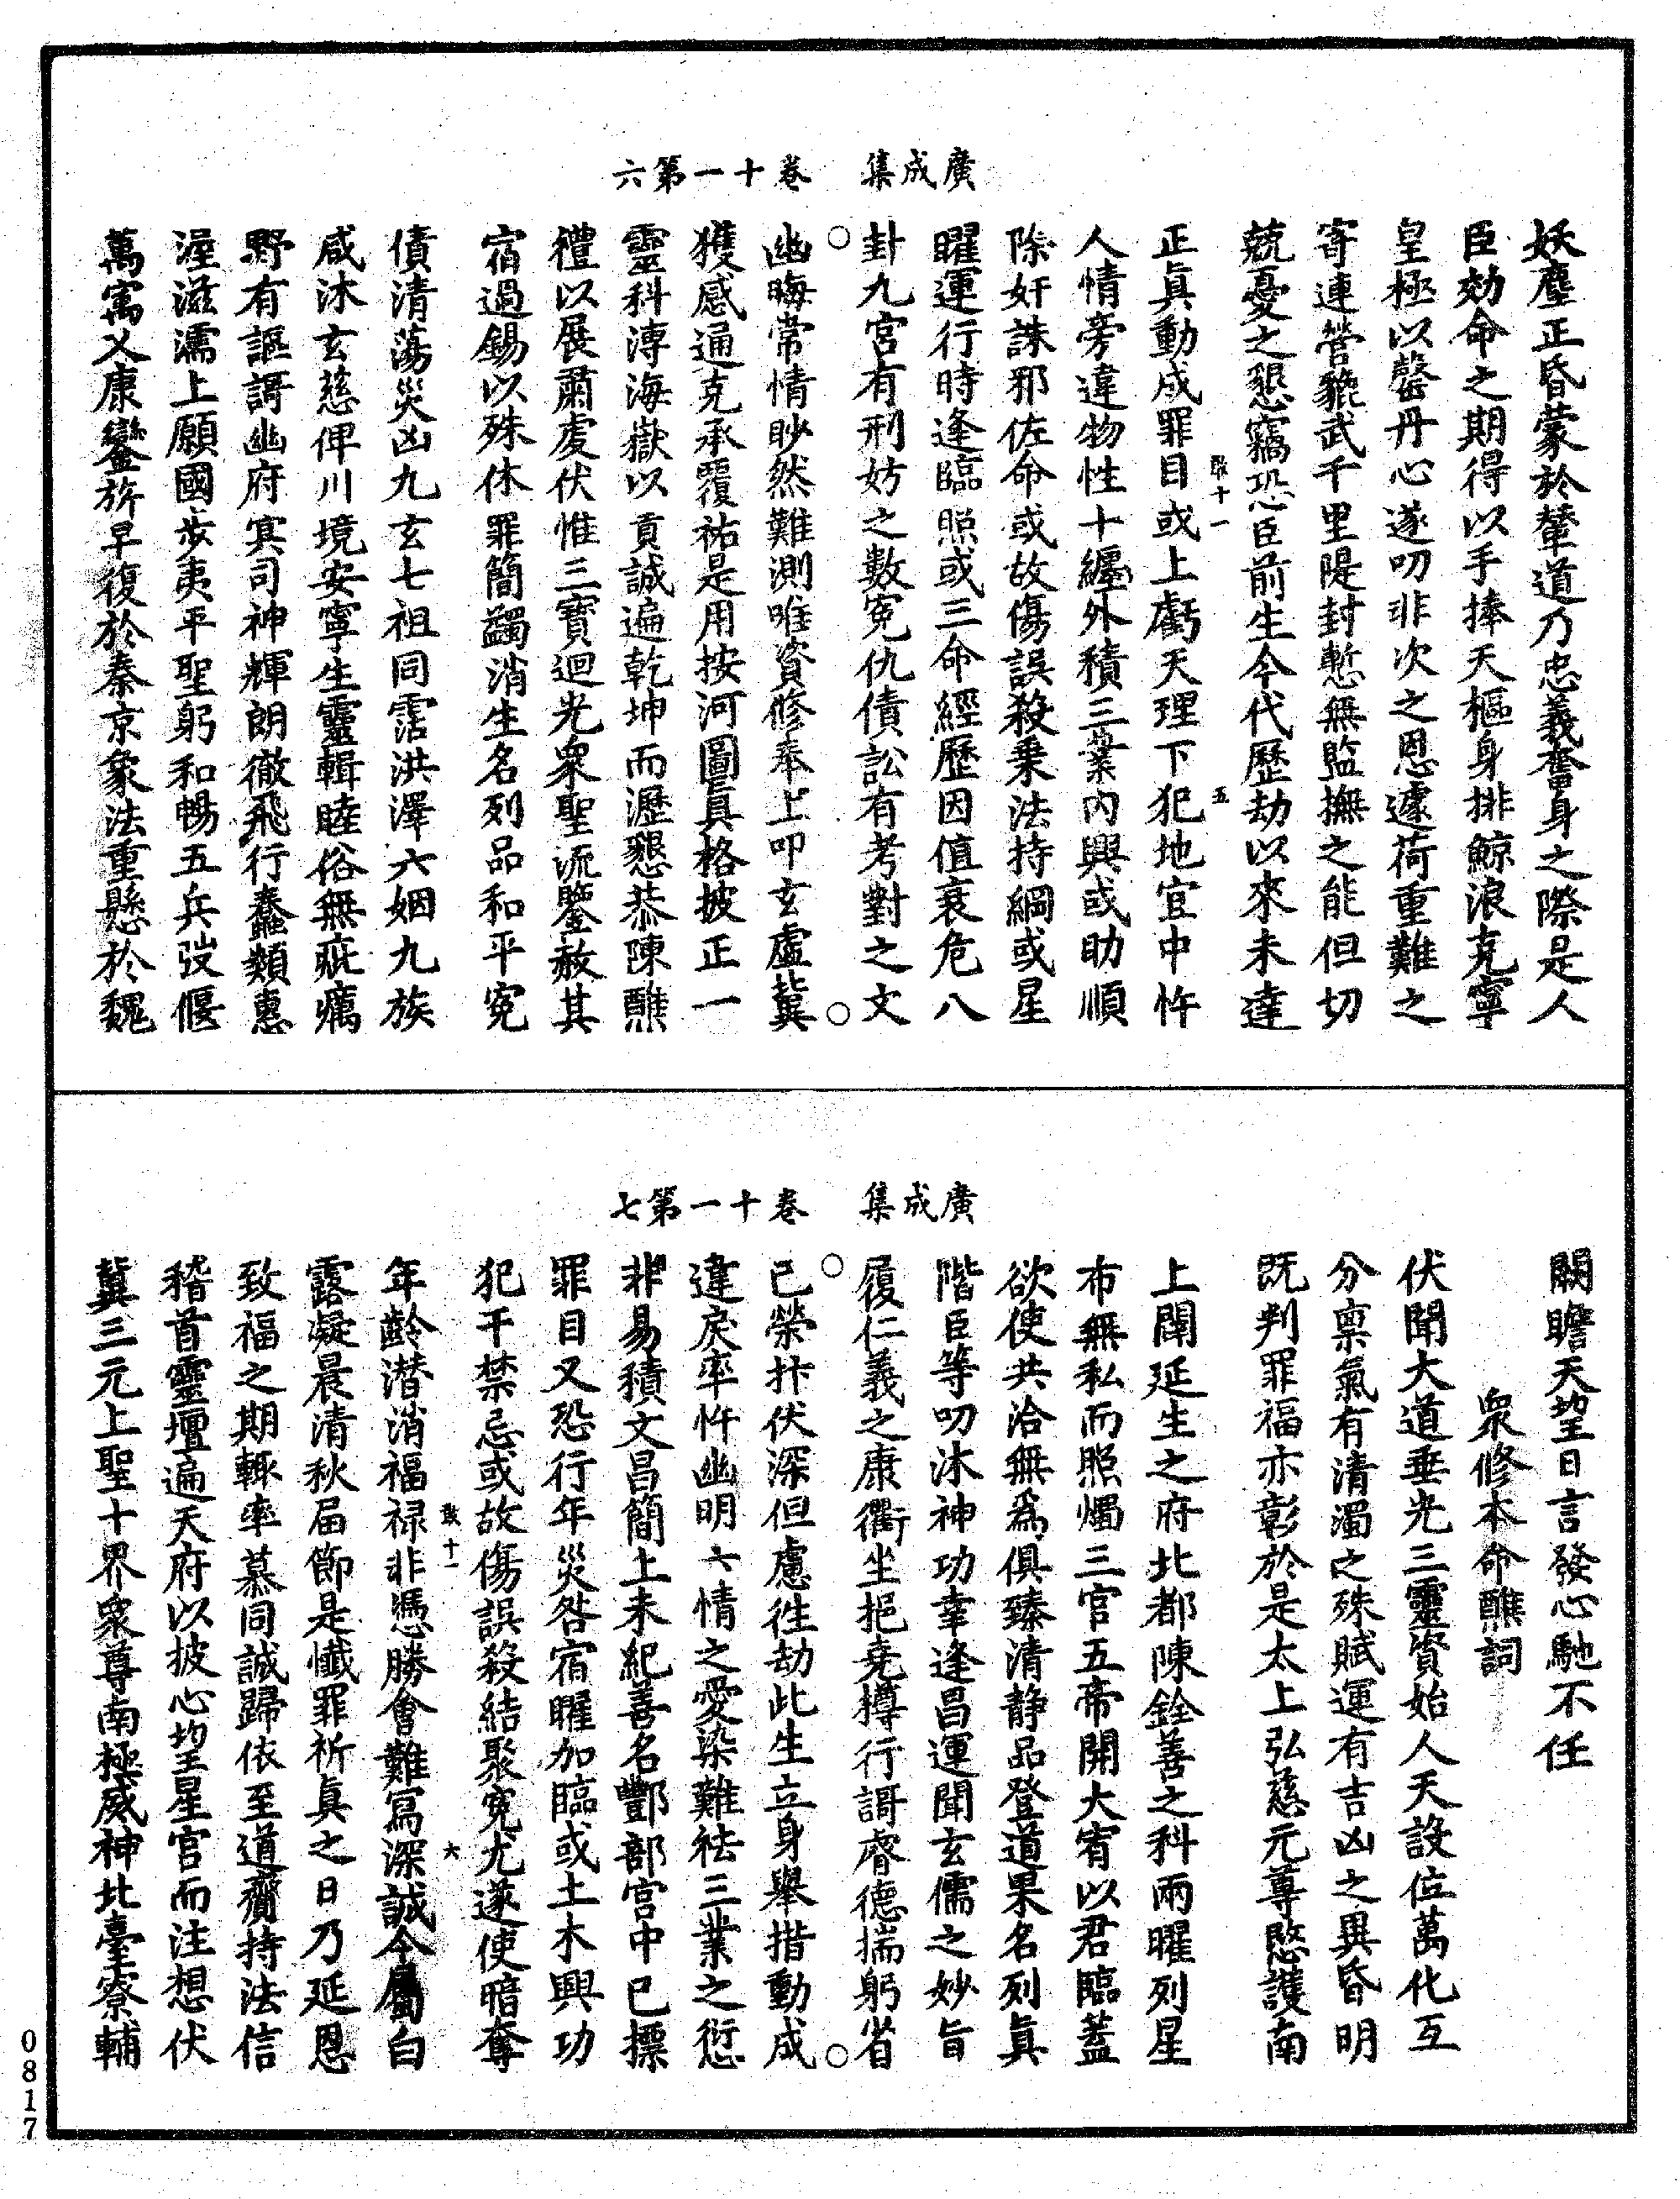 廣成集　卷十一第六
妖塵正昏蒙於輦道乃忠義奮身之際是人
臣効命之期得以手捧天樞身排鯨浪克寧
皇極以罄丹心遂叨非次之恩遽荷重難之
寄連營貔武千里隄封慙無監撫之能但切
兢憂之懇竊恐臣前生今代歷劫以來未達
十一　五
正眞動成罪目或上虧天理下犯地宜中忤
人情旁違物性十纏外積三業內興或助順
除奸誅邪佐命或故傷誤殺乗法持綱或星
曜運行時逢臨照或三命經歷因值衰危八
卦九宮有刑妨之數寃仇債訟有考對之文
幽晦常情眇然難測唯資修奉上叩玄虛冀
獲感通克承覆祐是用按河圖眞格披正一
靈科溥海嶽以貢誠遍乾坤而瀝懇恭陳醮
禮以展肅虔伏惟三寳迴光衆聖流鑒赦其
宿過錫以殊休罪簡蠲消生名列品和平寃
債清蕩災凶九玄七祖同霑洪澤六姻九族
咸沐玄慈俾川境安寧生靈輯睦俗無疵癘
野有謳謌幽府㝠司神輝朗徹飛行蠢類惠
渥滋濡上願國步夷平聖躬和暢五兵弢偃
萬㝢乂康鑾旂早復於秦京象法重懸於魏
廣成集　卷十一第七
闕瞻天望日言發心馳不任
衆修本命醮詞
伏聞大道垂光三靈資始人天設位萬化互
分禀氣有清濁之殊賦運有吉凶之異昏明
既判罪福亦彰於是太上弘慈元尊愍護南
上闡延生之府北都陳銓善之科兩曜列星
布無私而照燭三官五帝開大宥以君臨蓋
欲使共洽無爲俱臻清静品登道果名列眞
階臣等叨沐神功幸逢昌運聞玄儒之妙旨
履仁義之康衢坐挹堯樽行謌睿德揣躬省
已榮抃伏深但慮徃劫此生立身舉措動成
違戾率忤幽明六情之愛染難袪三業之愆
非易積文昌簡上未紀善名酆都宮中已摽
罪目又恐行年災咎宿曜加臨或土木興功
犯干禁忌或故傷誤殺結聚寃尤遂使暗奪
十一　六
年齡潛消福禄非憑勝會難冩深誠今屬白
露凝晨清秋届節是懴罪祈眞之日乃延恩
致福之期輙率慕同誠歸依至道齎持法信
稽首靈壇遍天府以披心望星官而注想伏
冀三元上聖十界衆尊南極威神北臺寮輔
0817